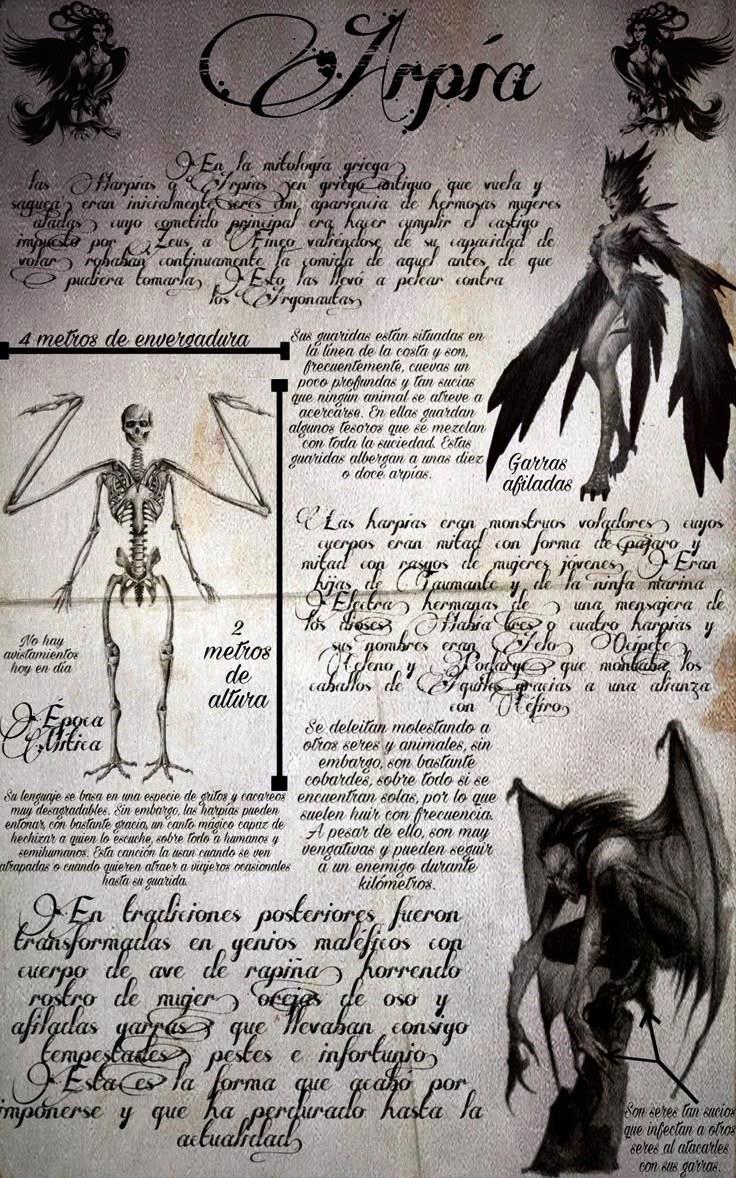 Arpía
En la mitología griega
las Harpías o Arpías en griego antiguo que vuela y
saquea eran inicialmente seres con apariencia de hermosas mujeres
aladas cuyo cometido principal era hacer cumplir el castigo
impuesto por Zeus a Fineo valiéndose de su capacidad de
volar robaban continuamente la comida de aquel antes de que
pudiera tomarla Esto las llevó a pelear contra
los Argonautas
4 metros de envergadura
Sus guaridas están situadas en
la línea de la costa y son,
frecuentemente, cuevas un
poco profundas y tan sucias
que ningún animal se atreve a
acercarse. En ellas guardan
algunos tesoros que se mezclan
con toda la suciedad. Estas
guaridas albergan a unas diez
o doce arpías.
Garras
afiladas
Las harpías eran monstruos voladores cuyos
cuerpos eran mitad con forma de pájaro y
mitad con rasgos de mujeres jóvenes Eran
hijas de Taumante y de la ninfa marina
Electra hermanas de una mensajera de
los dioses Había tres o cuatro harpías y
sus nombres eran Aelo Ocípete
Celeno y Podarge que montaba los
caballos de Aquiles gracias a una alianza
con Céfiro
2
metros
de
altura
No hay
avistamientos
hoy en día
Época
Mítica
Se deleitan molestando a
otros seres y animales, sin
embargo, son bastante
cobardes, sobre todo si se
encuentran solas, por lo que
suelen huir con frecuencia.
A pesar de ello, son muy
vengativas y pueden seguir
a un enemigo durante
kilómetros.
Su lenguaje se basa en una especie de gritos y cacareos
muy desagradables. Sin embargo, las harpías pueden
entonar, con bastante gracia, un canto mágico capaz de
hechizar a quien lo escuche, sobre todo a humanos y
semihumanos. Esta canción la usan cuando se ven
atrapadas o cuando quieren atraer a viajeros ocasionales
hasta su guarida.
En tradiciones posteriores fueron
transformadas en genios maléficos con
cuerpo de ave de rapiña horrendo
rostro de mujer orejas de oso y
afiladas garras y que llevaban consigo
tempestades pestes e infortunio
Esta es la forma que acabó por
imponerse y que ha perdurado hasta la
actualidad
Son seres tan sucios
que infectan a otros
seres al atacarles
con sus garras.